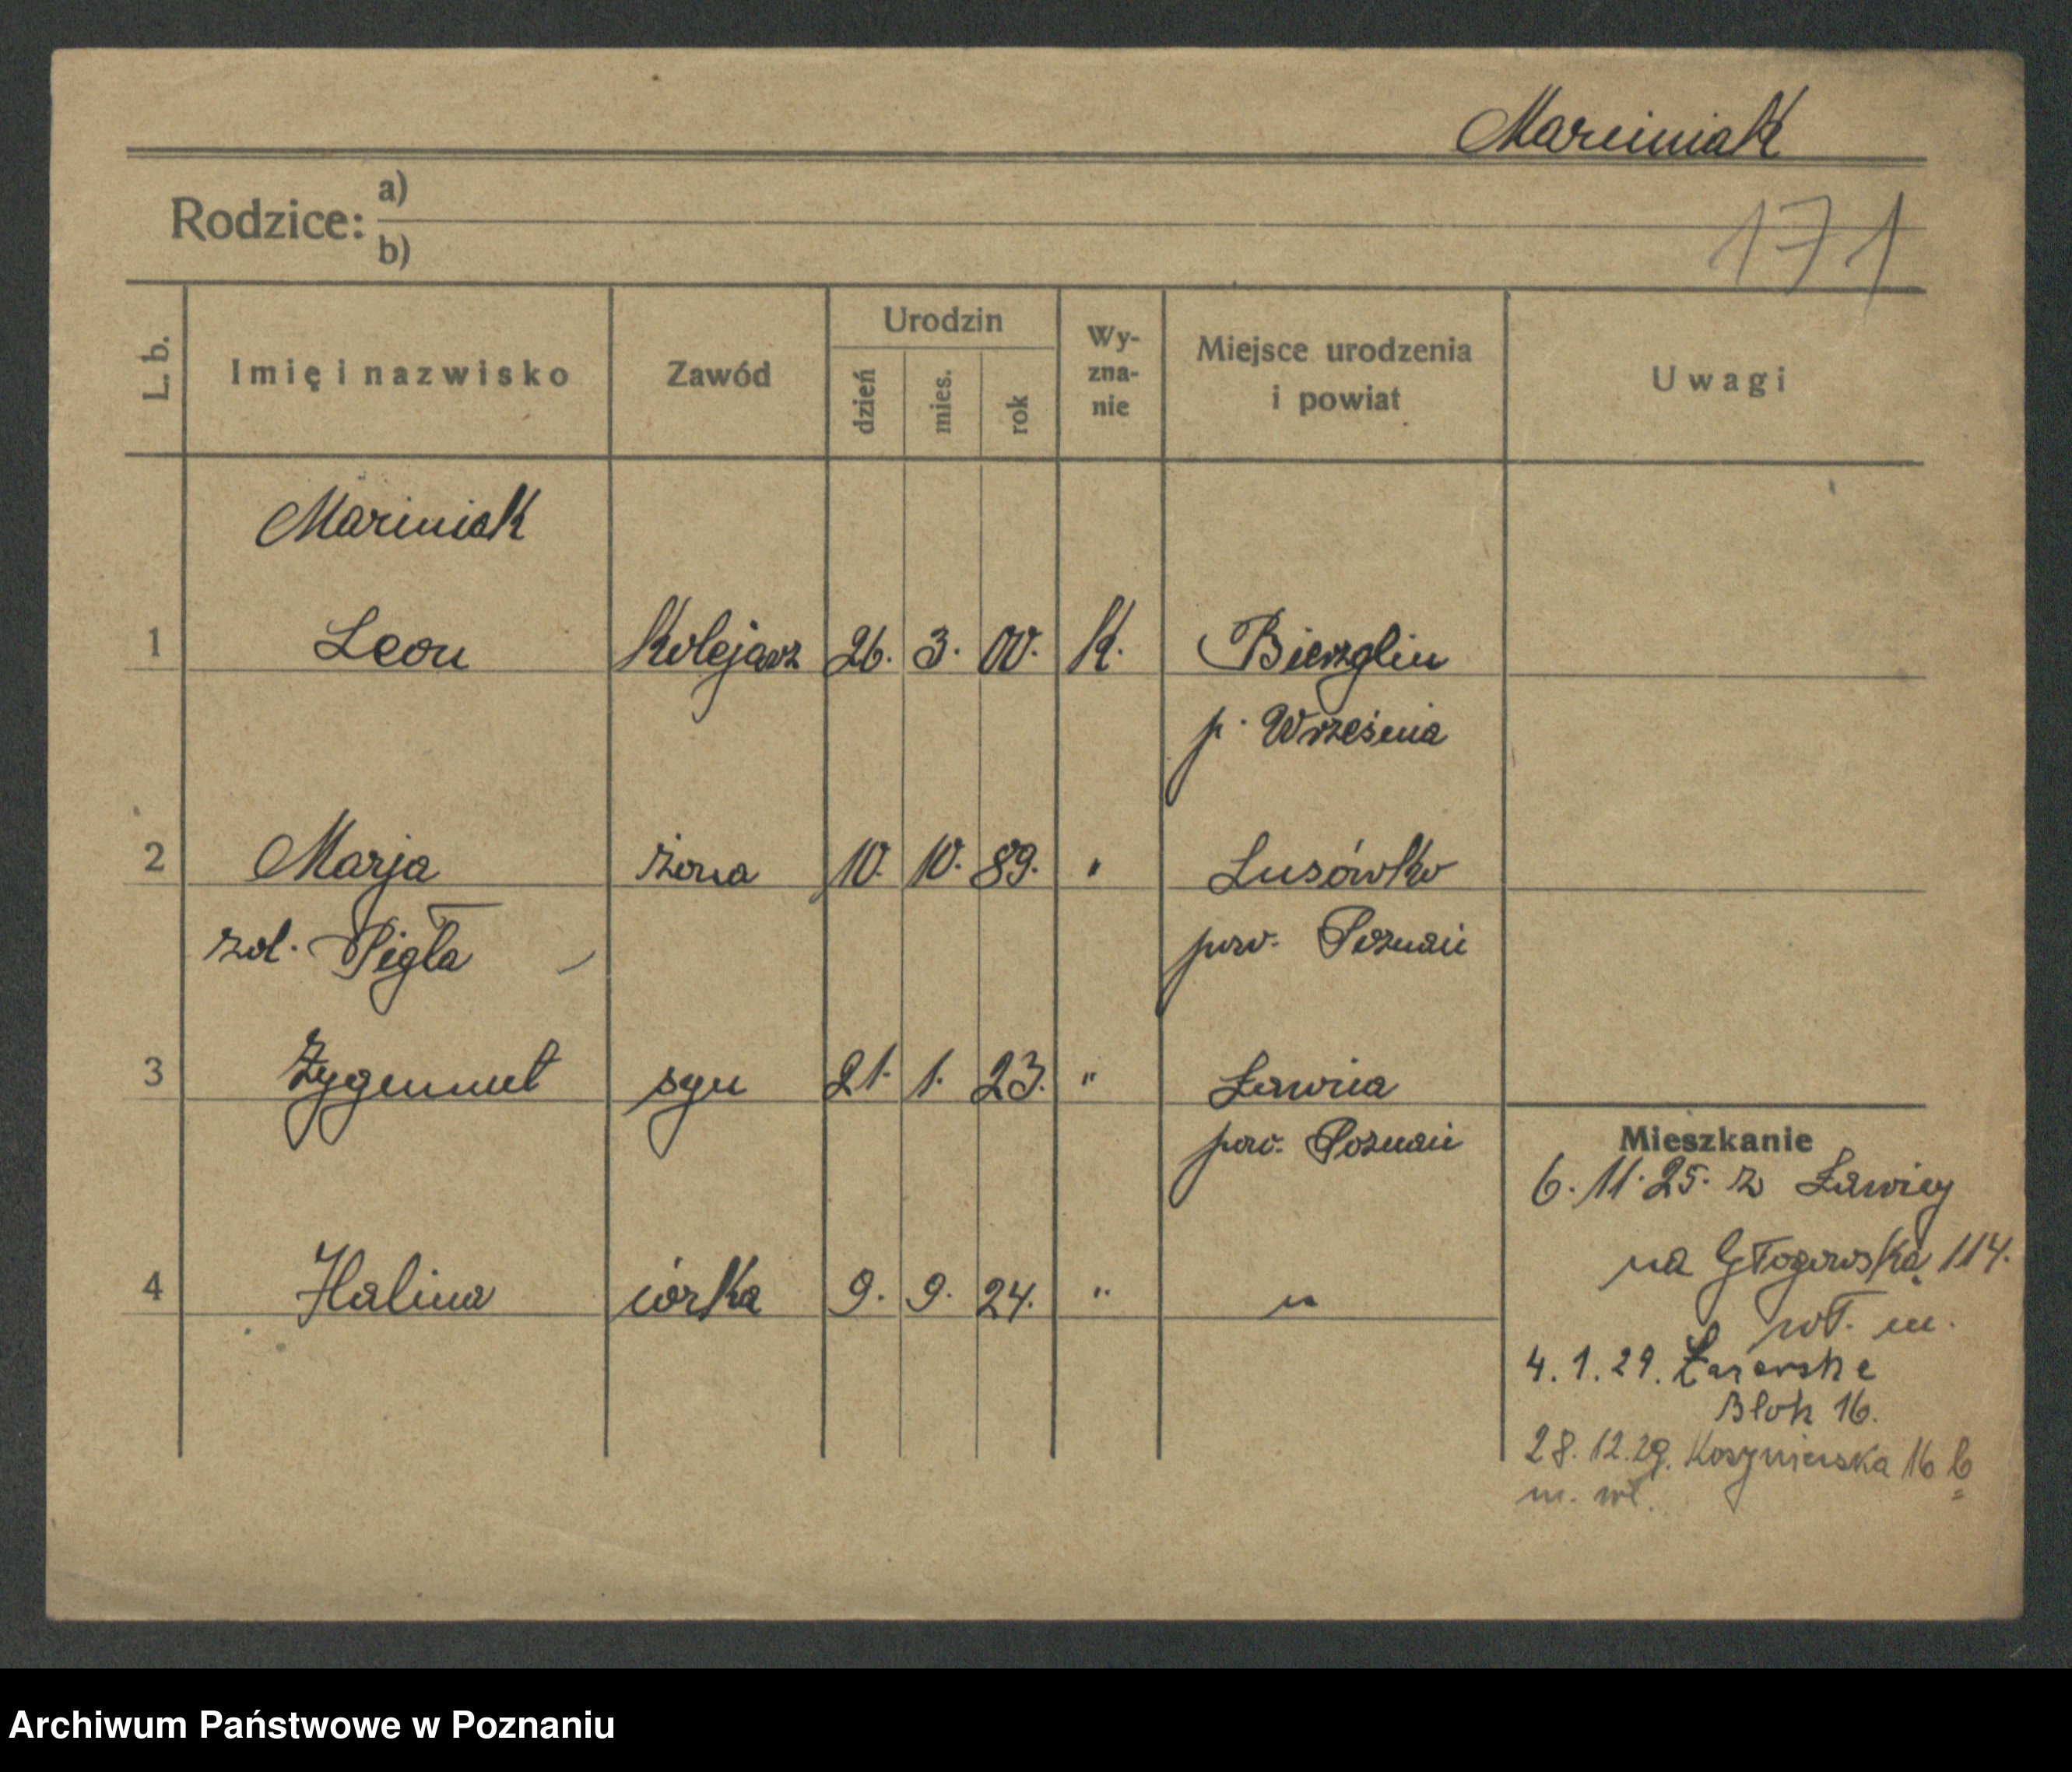 Marciniak
Rodzice: a)
b)
171
L. b. Imię i nazwisko Zawód Urodzin dzień mies. rok Wy-zna-nie Miejsce urodzenia i powiat Uwagi
Marciniak
1 Leon Kolejarz 26. 3. 00. K. Bierzglin
p. Września
2 Marja żona 10. 10. 89. " Lusówko
zol. Pigła pow. Poznań
3 Zygmunt syn 21. 1. 23. " Ławica
pow. Poznań
Mieszkanie
6.11.25. z Ławicy
na Głogowską 114.
wł. m.
4 Halina córka 9. 9. 24. " "
4.1.29.
Blok 16.
28.12.29. Kosynierska 16 b
m. wł.
Archiwum Państwowe w Poznaniu